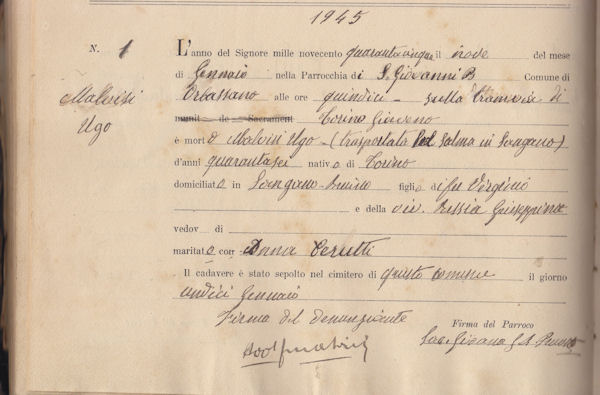 1945
N. 1
L'anno del Signore mille novecento quarantacinque il nove del mese
di Gennaio nella Parrocchia di S. Giovanni B Comune di
Malvisi Ugo
Orbassano alle ore quindici - sulla tramvia di
munit de Sacrament Torino Giaveno
è morto Malvisi Ugo - (trasportata salma in Sangano)
d'anni quarantasei nativo di Torino
domiciliato in Sangano figlio di fu Virginio
e della viv. Giuseppina
vedov di
maritato con Anna Cerutti
Il cadavere è stato sepolto nel cimitero di questo comune il giorno
undici Gennaio
Firma del denunziante
Firma del Parroco
Sac.